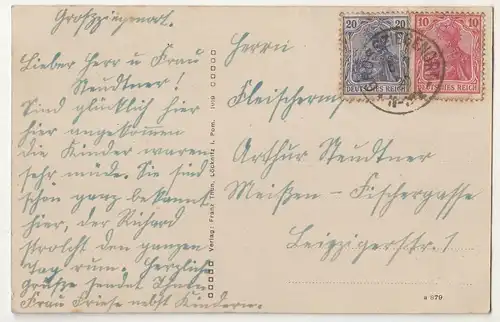 Großziegenort.
Lieber Herr u Frau
Steudtner!
Sind glücklich hier
hier angekommen
die Kinder waren
sehr müde. Sie sind
schon ganz bekannt
hier, der Richard
strolcht den ganzen
Tag rum. Herzliche
Grüße sendet Ihnen
Frau Friese nebst Kindern.
Verlag: Franz Thom, Löcknitz i. Pom.
Herrn
Fleischerm
Arthur Steudtner
Meißen – Fischergasse
Leipzigerstr. 1
20 20
DEUTSCHES REICH
10
DEUTSCHES REICH
a 679